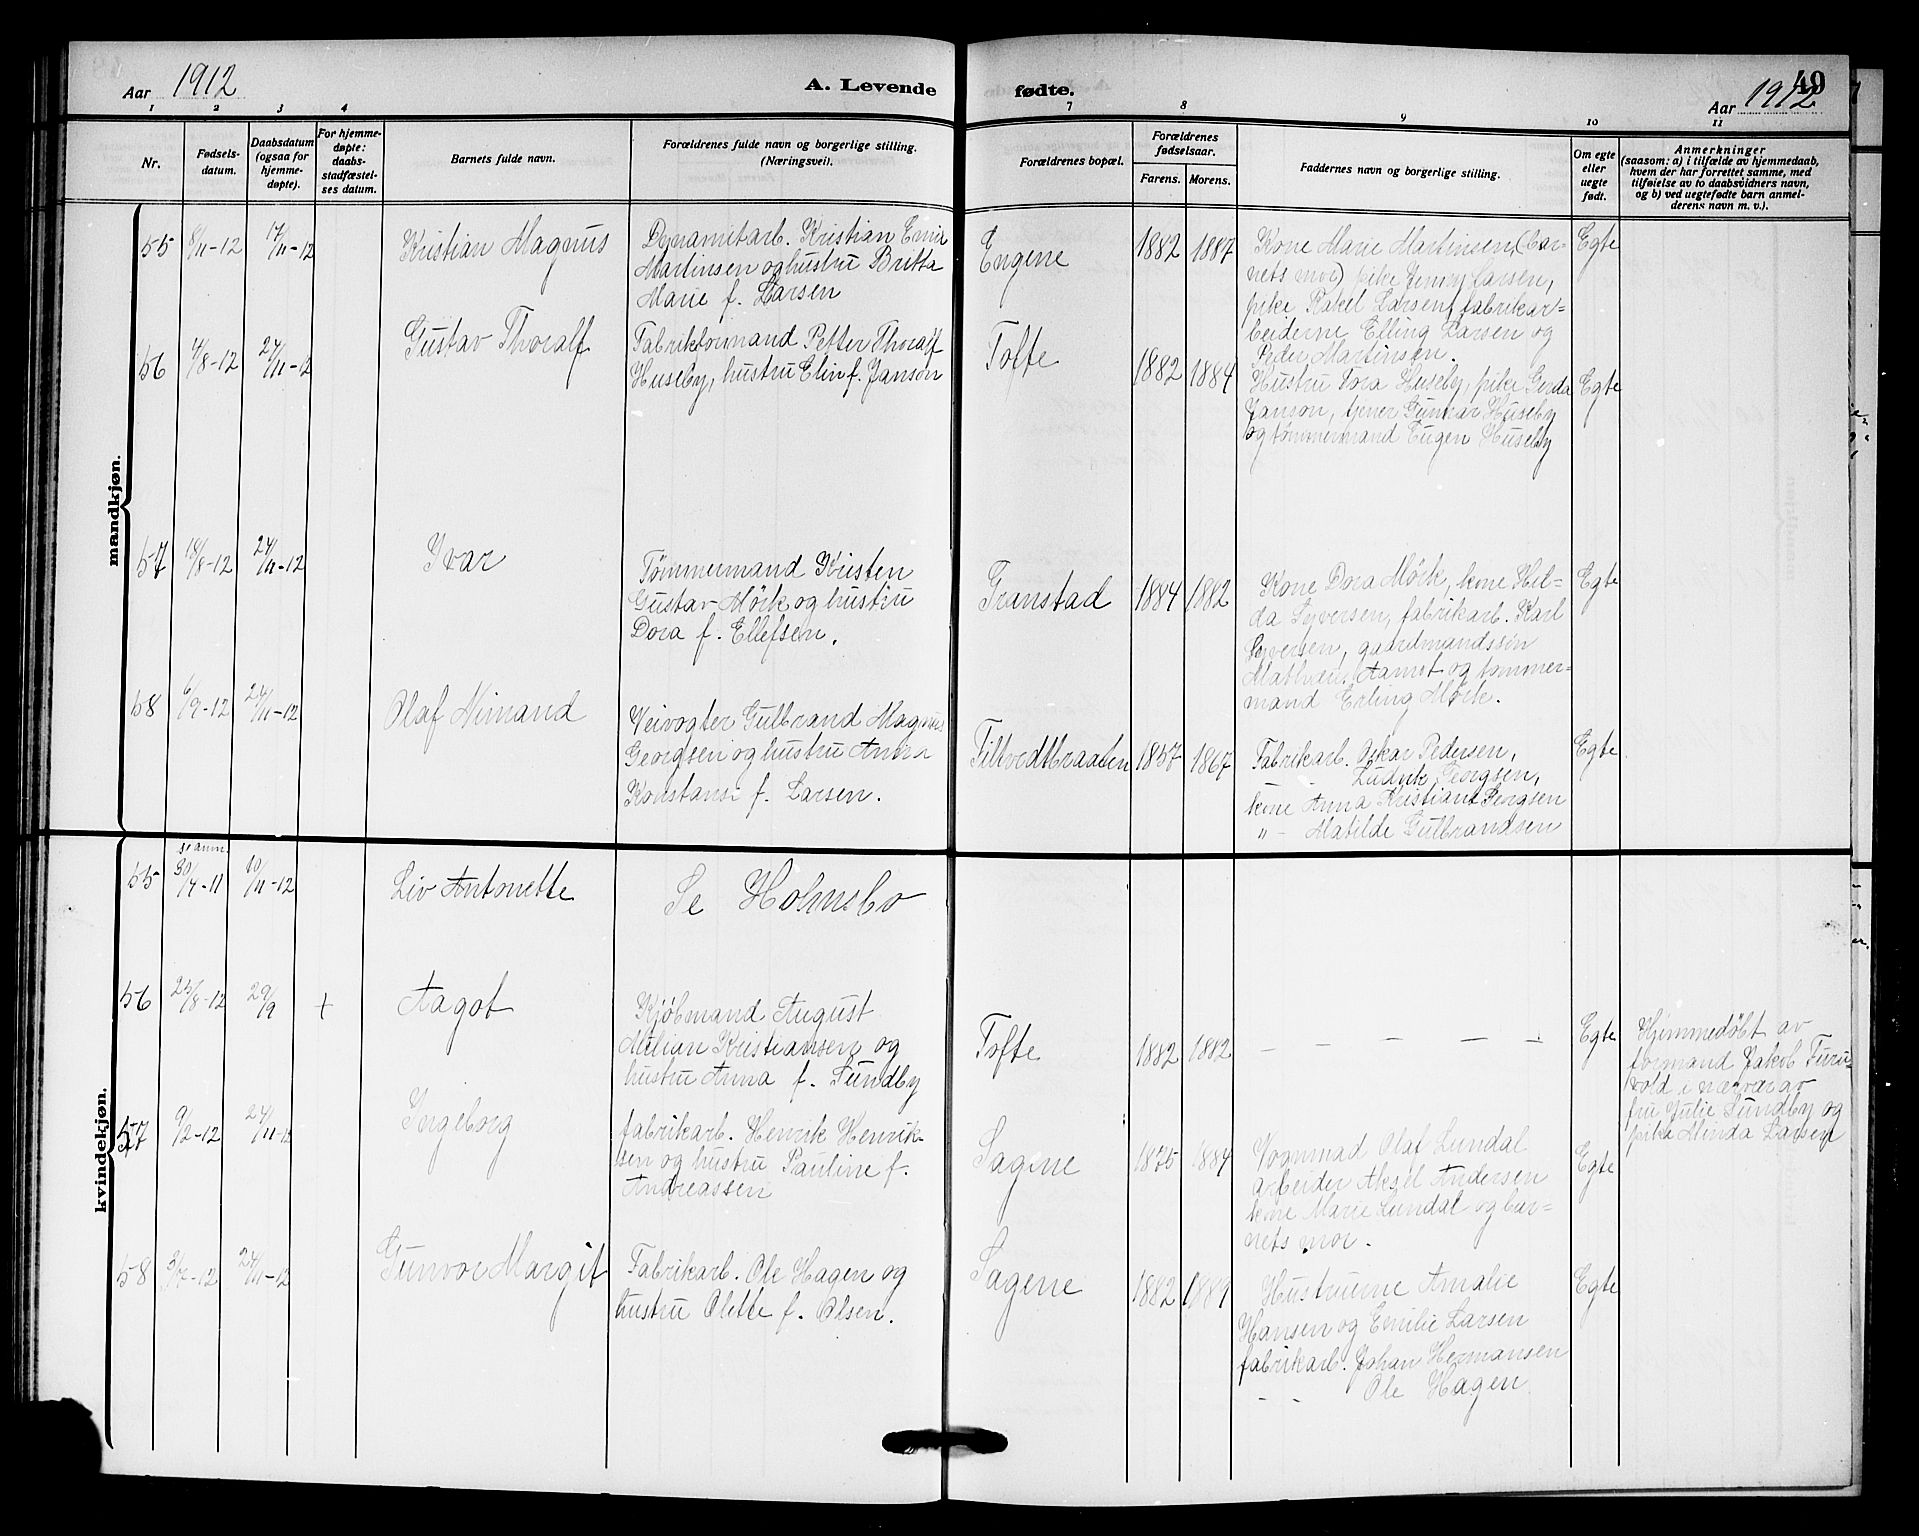 Aar 1912
A. Levende
fødte.
49
Aar 1912
1 2 3 4
7 8 9 10 11
Nr.
Fødsels-
datum.
Daabsdatum
(ogsaa for
hjemme-
døpte).
For hjemme-
døpte:
daabs-
stadfæstel-
ses datum.
Barnets fulde navn.
Forældrenes fulde navn og borgerlige stilling.
(Næringsvei).
Forældrenes bopæl.
Forældrenes
fødselsaar.
Farens. Morens.
Faddernes navn og borgerlige stilling.
Om egte
eller
uegte
født.
Anmerkninger
(saasom: a) i tilfælde av hjemmedaab,
hvem der har forrettet samme, med
tilføielse av to daabsvidners navn,
og b) ved uegtefødte barn anmel-
derens navn m. v.).
mandkjøn.
55 8/11-12 17/11-12 Kristian Magnus
Dynamitarb. Kristian Emil
Martinsen og hustru Britta
Marie f. Larsen
Engene 1882 1887
Kone Marie Martinsen, (bar-
nets mor) pike Jenny Larsen,
pike Rakel Larsen, fabrikar-
beiderne Elling Larsen og
Peder Martinsen.
Egte
56 4/8-12 24/11-12 Gustav Thoralf
Fabrikformand Petter Thoralf
Huseby, hustru Elin f. Janson
Tofte 1882 1884
Hustru Tora Huseby, pike Gerda
Janson, tjener Gunnar Huseby
og tømmermand Eugen Huseby
Egte
57 18/8-12 24/11-12 Ivar
Tømmermand Kristen
Gustav Mörk og hustru
Dora f. Ellefsen.
Granstad 1884 1882
Kone Dora Mörk, kone Hil-
da Syversen, fabrikarb. Karl
Syversen, gaardmandssön
Aamot og tømmer-
mand Erling Mörk.
Egte
58 6/9-12 24/11-12 Olaf Nimand
Veivogter Gulbrand Magnus
Georgsen og hustru Andra
Konstanse f. Larsen.
Tiltvedtbraaten 1857 1867
Fabrikarb. Oskar Pedersen,
Ludvik Georgsen,
kone Anna Kristiane Bergsen
" - Matilde Gulbrandsen
Egte
kvindekjøn.
se anm.
55 30/7-11 10/11-12 Liv Antonette
Se Holmsbo
56 25/8-12 29/9 + Aagot
Kjöbmand August
Milian Kristiansen og
hustru Anna f. Sundby
Tofte 1882 1882 - - - - - Egte
Hjemmedöbt av
formand Jakob Furu-
vold i nærvær av
fru Julie Sundby og
pike Minda Larsen
57 9/2-12 24/11-12 Ingeborg
fabrikarb. Henrik Henrik-
sen og hustru Pauline f.
Andreassen
Sagene 1875 1884
Vognmad Olaf Lundal
arbeider Aksel Andersen
kone Marie Lundal og bar-
nets mor.
Egte
58 3/7-12 24/11-12 Gunvor Margit
Fabrikarb. Ole Hagen og
hustru Olette f. Olsen.
Sagene 1882 1889
Hustruerne Amalie
Hansen og Emilie Larsen
fabrikarb. Johan Hermansen
- - Ole Hagen
Egte